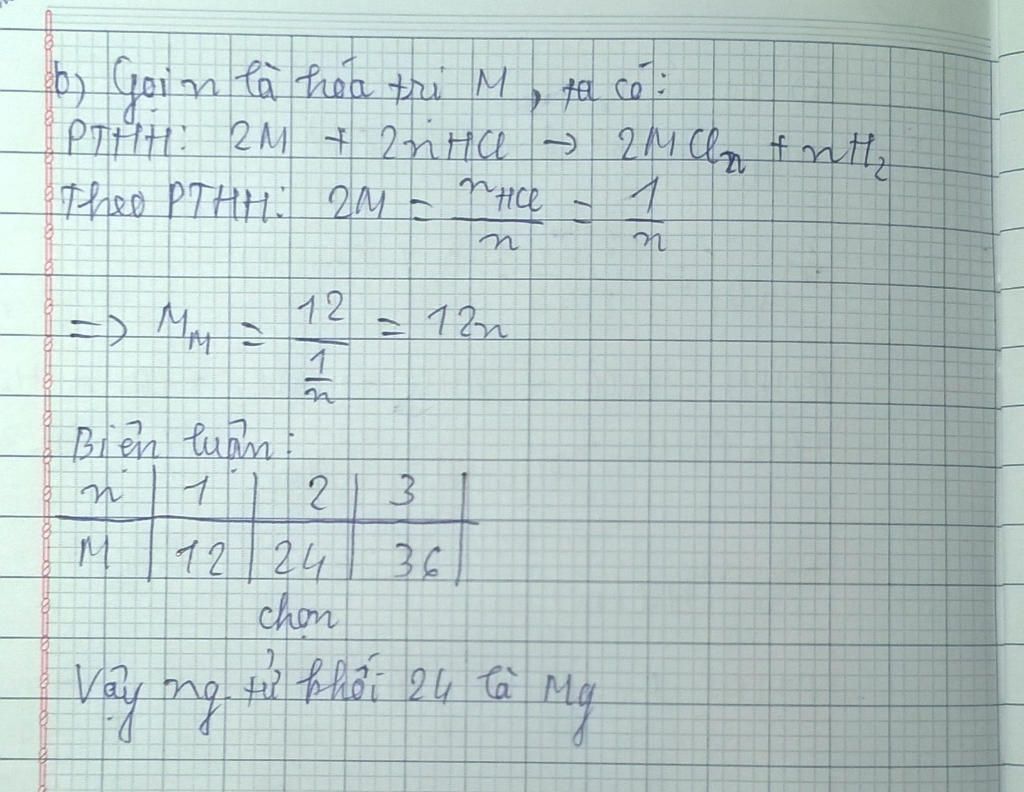 b) Gọi n là hóa trị M, ta có:
PTHH: 2M + 2nHCl → 2MCln + nH2
Theo PTHH: 2M = nHCl/n = 1/n
=> MM = 12/(1/n) = 12n
Biện luận:
n | 1 | 2 | 3 |
M | 12 | 24 | 36 |
chọn
Vậy ng tử khối 24 là Mg